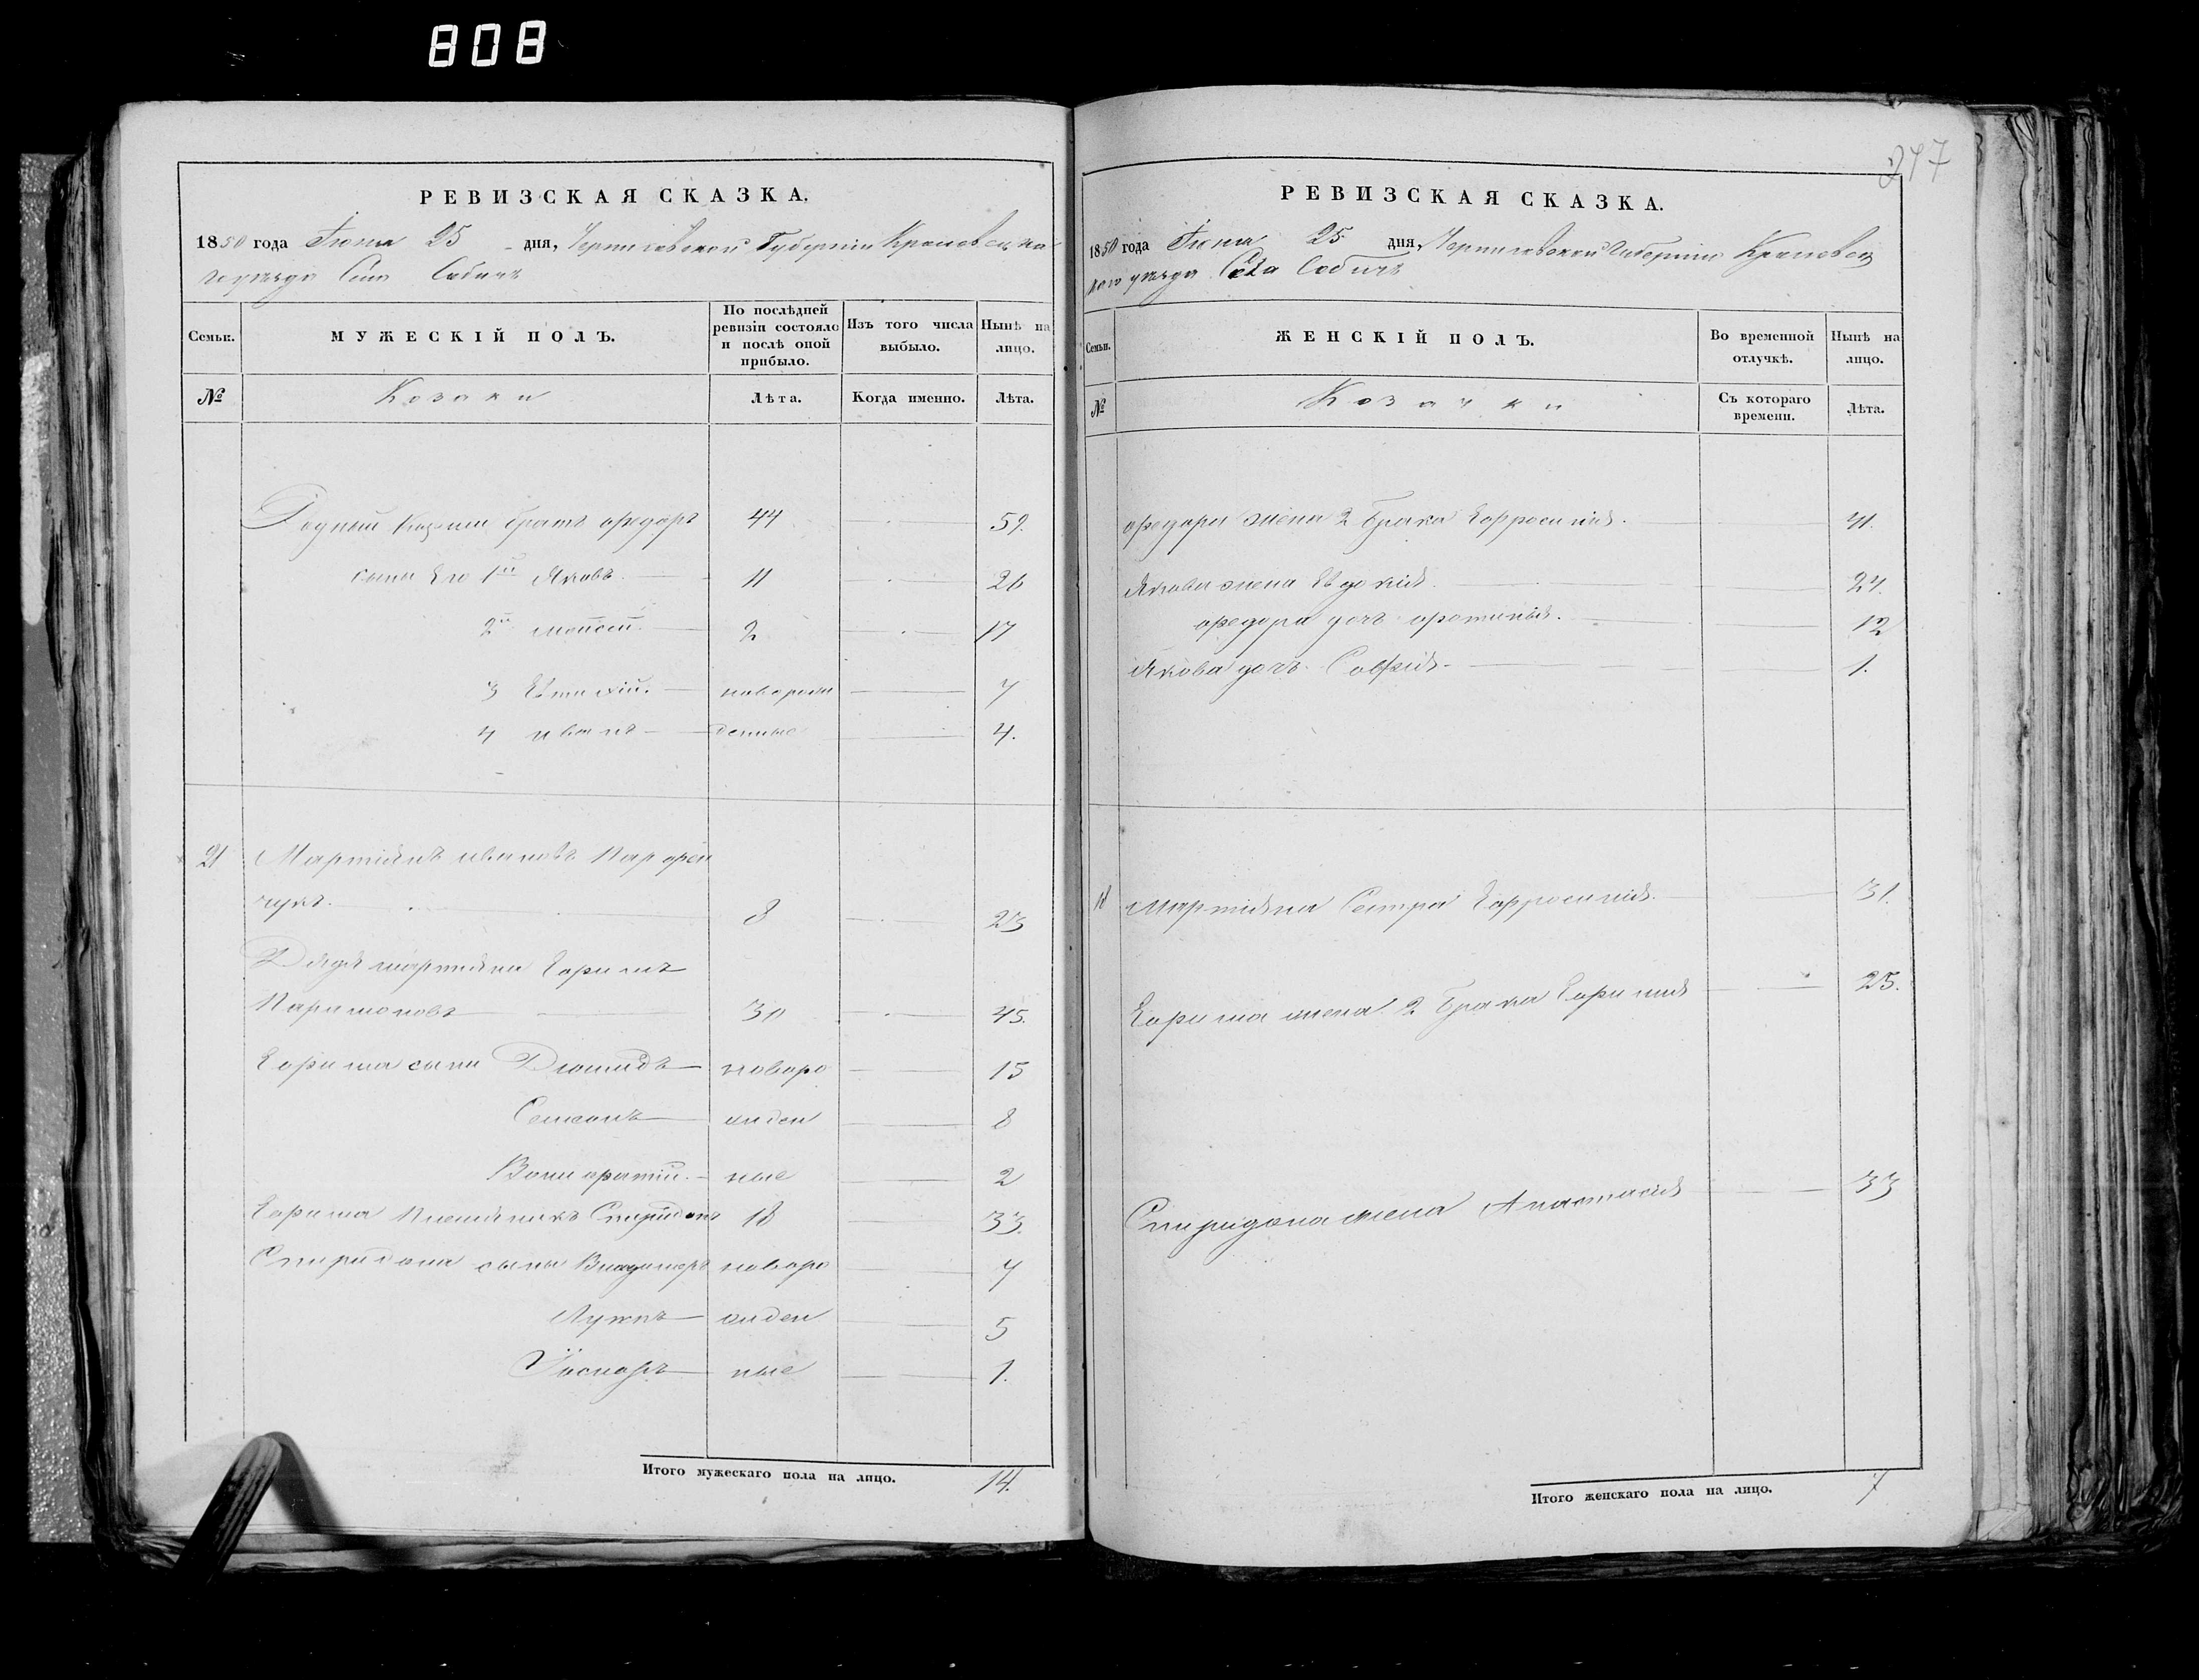 808
РЕВИЗСКАЯ СКАЗКА.
1850 года Іюня 25 дня, Черниговской Губерніи Кролевецка
го уѣзда Села Собичъ
Семьи. МУЖЕСКІЙ ПОЛЪ. По послѣдней ревизіи состояло и послѣ оной прибыло. Изъ того числа выбыло. Нынѣ на лицо.
№ Козаки Лѣта. Когда именно. Лѣта.
Родный Козьмы братъ Федоръ 44 59.
сыны Его 1й Яковъ 11 26
2й Моисей 2 17
3 Евтихій новорож 7
4 Иванъ денные 4.
21 Мартіянъ Ивановъ Парфен
чукъ 8 23
Дядя Мартіяна Ефимъ
Парамоновъ 30 45.
Ефима сыны Діомидъ новоро 15
Семенъ жден 8
Вонифатій ные 2
Ефима племяникъ Спиридонъ 18 33.
Спиридона сыны Владимеръ новоро 7
Лукъ жден 5
ные 1.
Итого мужескаго пола на лицо. 14.
247
РЕВИЗСКАЯ СКАЗКА.
1850 года Іюня 25 дня, Черниговской Губерніи Кролевец
каго уѣзда Села Собичъ
Семьи. ЖЕНСКІЙ ПОЛЪ. Во временной отлучкѣ. Нынѣ на лицо.
№ Козачки Съ котораго времени. Лѣта.
Федора жена 2 брака Ефросинія 41.
Якова жена Евдокія 24.
Федора дочь Фотинья 12
Якова дочь Софія 1.
Мартіяна Сестра Ефросинія 31.
Ефима жена 2 брака Ефимія 25.
Спиридона жена Анастасія 33
Итого женскаго пола на лицо. 7